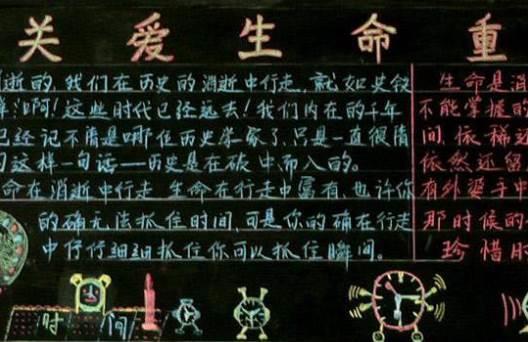 关爱生命 重
消逝的,我们在历史的消逝中行走,就如史铁
啊!这些时代已经远去!我们内在的千年
已经记不清是哪位历史学家了,只是一直很清
这样一句话——历史是在砍中而入的。
命在消逝中行走 生命在行走中富有,也许你
的确无法抓住时间,可是你的确在行走
中仔仔细细抓住你可以抓住瞬间。
生命是消
不能掌握的
间,依稀
依然还留
有外婆手中
那时候的
珍惜时
时间